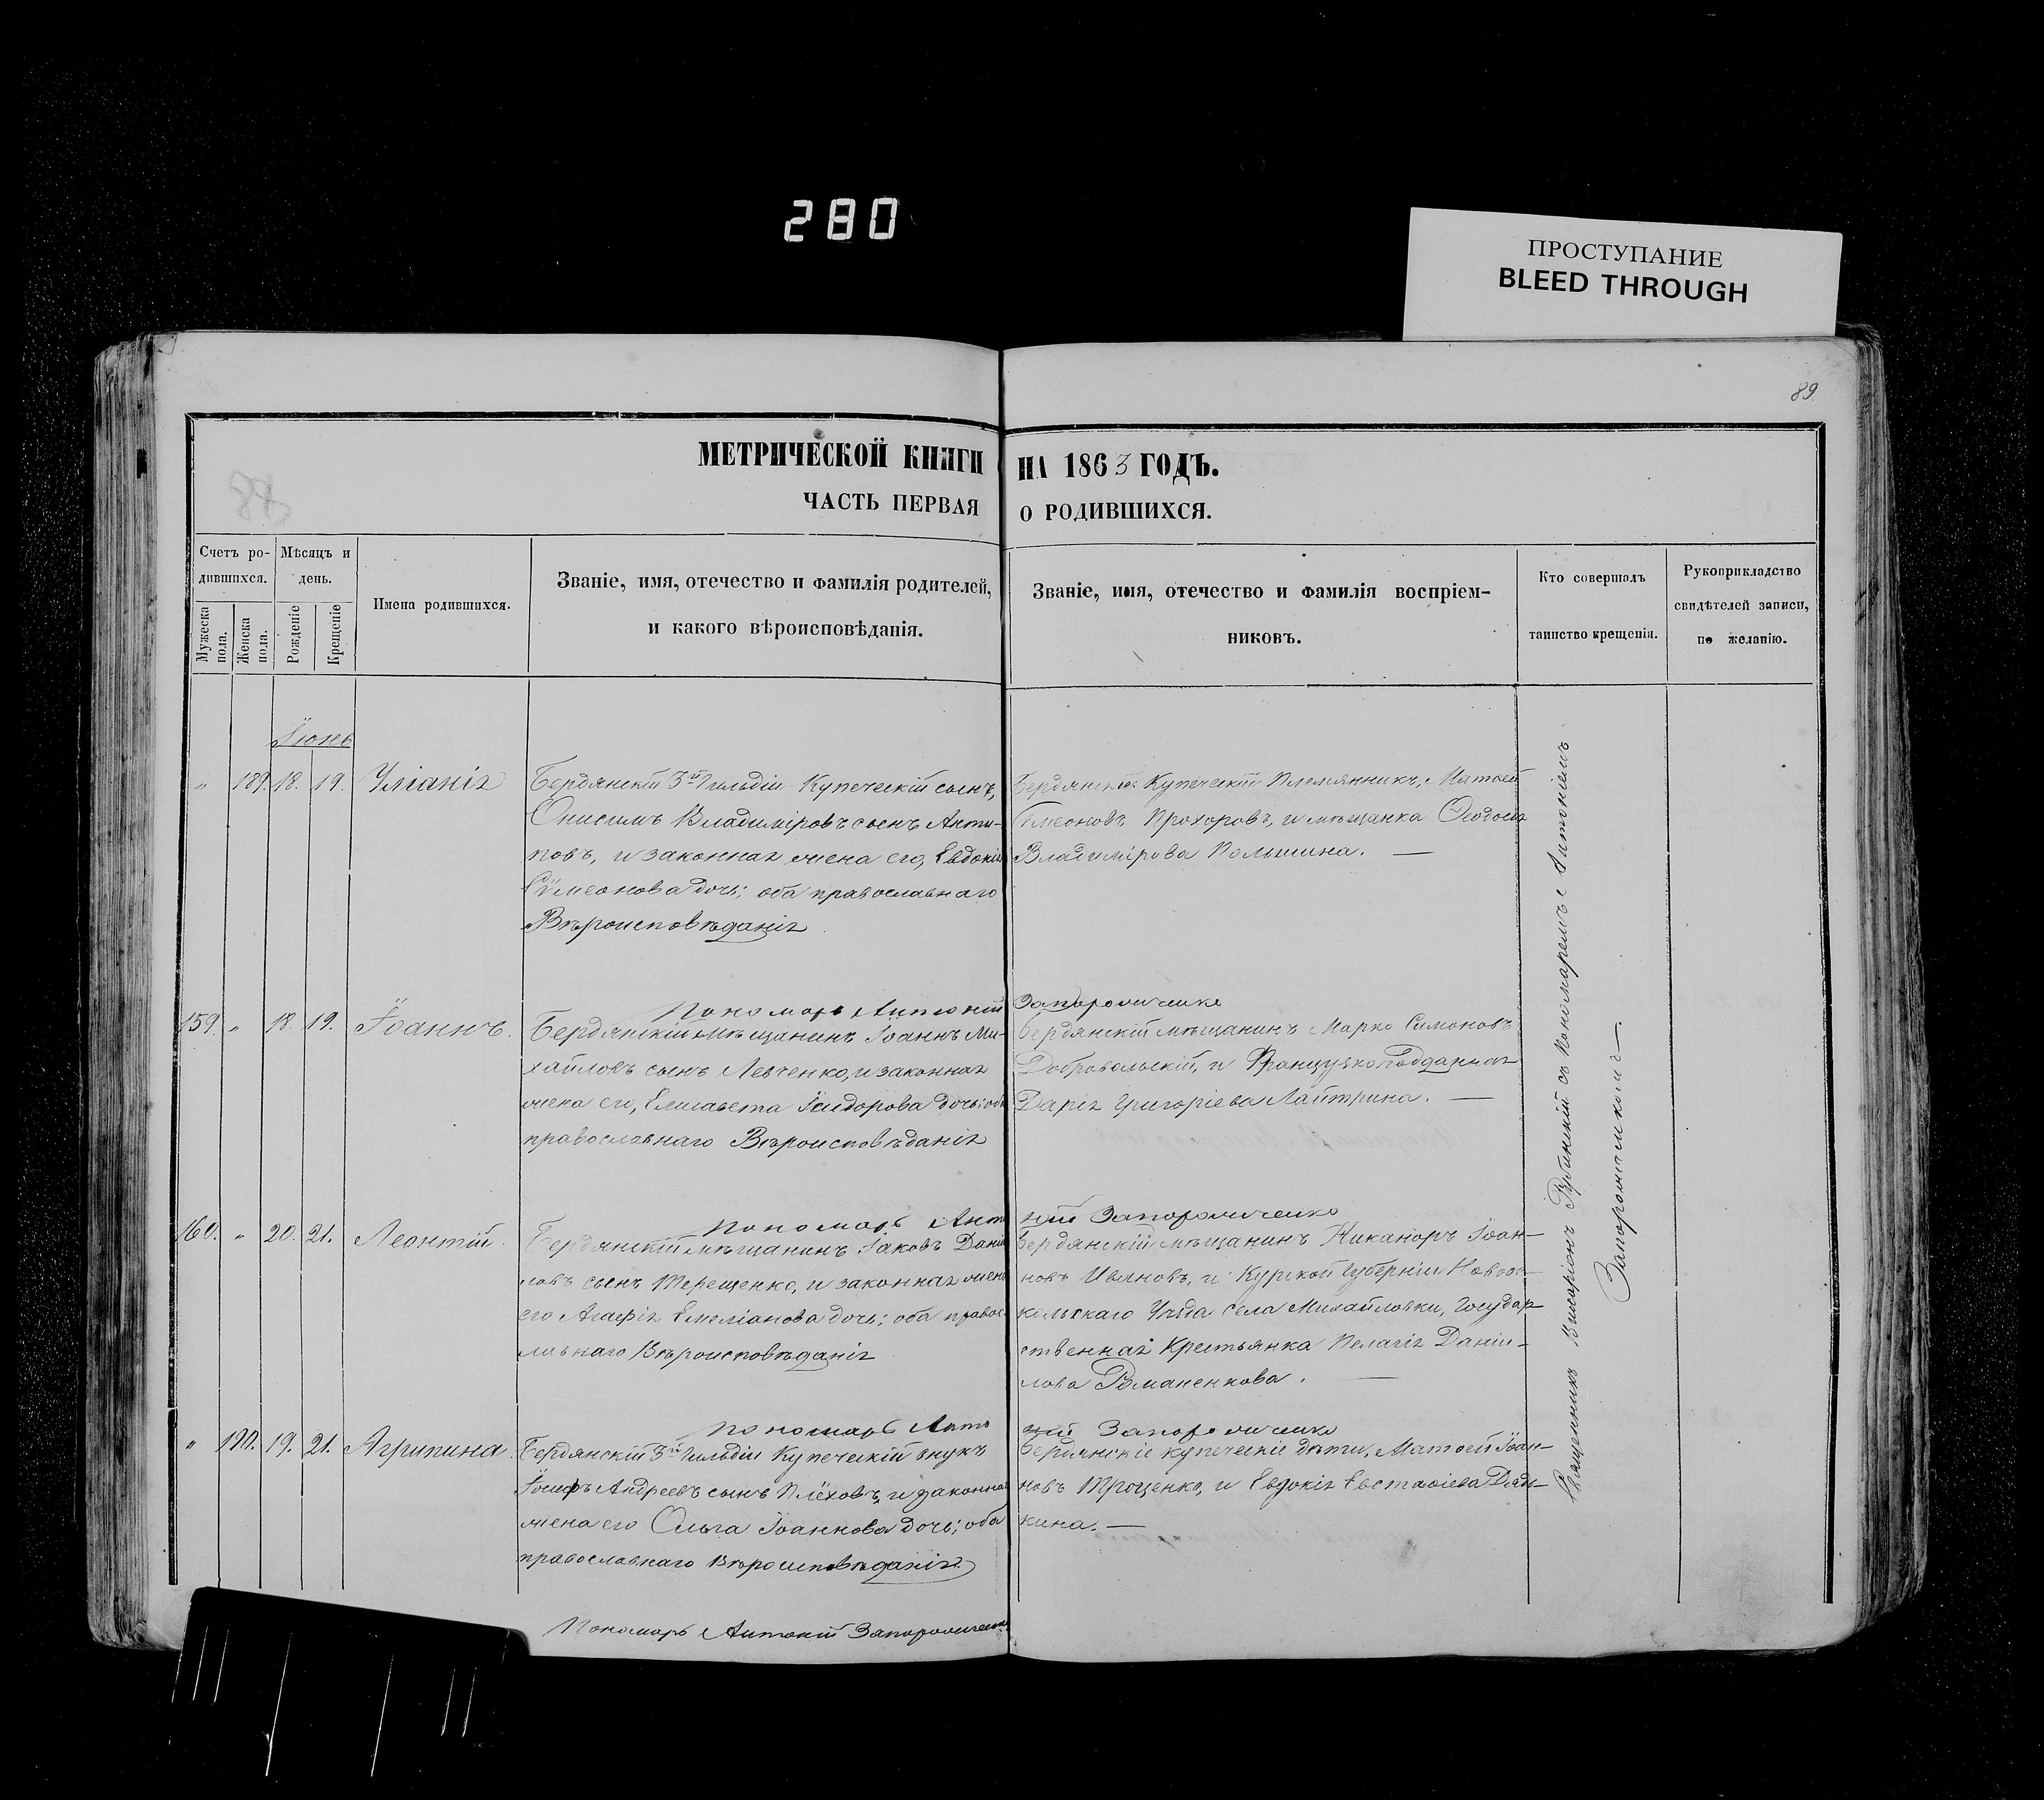 280
ПРОСТУПАНИЕ
BLEED THROUGH
89
МЕТРИЧЕСКОЙ КНИГИ НА 1863 ГОДЪ.
ЧАСТЬ ПЕРВАЯ О РОДИВШИХСЯ.
Счетъ ро-
дившихся.
Мужеска пола.
Женска пола.
Мѣсяцъ и
день.
Рожденіе
Крещеніе
Имена родившихся.
Званіе, имя, отечество и фамилія родителей,
и какого вѣроисповѣданія.
Званіе, имя, отечество и фамилія воспріем-
никовъ.
Кто совершалъ
таинство крещенія.
Рукоприкладство
свидѣтелей записи,
по желанію.
Іюнь
" 189. 18. 19. Уліанія
Бердянскій 3й гильдіи Купеческій сынъ,
Онисимъ Владиміровъ сынъ Анти-
повъ, и законная жена его, Евдокія
Сѵмеонова дочь; оба православнаго
Вѣроисповѣданія
Бердянскій Купеческій Племянникъ, Матѳей
Сѵмеоновъ Прохоровъ, и мѣщанка Ѳеодосія
Владимірова
Пономарь Антоній Запорожченко
159. " 18. 19. Іоаннъ.
Бердянскій мѣщанинъ Іоаннъ Ми-
хайловъ сынъ Левченко, и законная
жена его, Елисавета Ісидорова дочь; оба
православнаго Вѣроисповѣданія
Бердянскій мѣщанинъ Марко Симоновъ
Добровольскій, и Французкоподданная
Дарія Григоріева Лайтрина. —
Пономарь Антоній Запорожченко
160. " 20. 21. Леонтій.
Бердянскій мѣщанинъ Іаковъ Даніи-
ловъ сынъ Терещенко, и законная жена
его Агафія Емеліанова дочь; оба правос-
лавнаго Вѣроисповѣданія
Бердянскій мѣщанинъ Никаноръ Іоан-
новъ Ивановъ, и Курской Губерніи Новоос-
кольскаго Уѣзда села Михайловки, Государ-
ственная Крестьянка Пелагія Даніи-
лова
Пономарь Антоній Запорожченко
" 190. 19. 21. Агрипина.
Бердянскій 3й гильдіи Купеческій внукъ
Іосифъ Андреевъ сынъ Плёховъ, и законная
жена его Ольга Іоаннова дочь; оба
православнаго Вѣроисповѣданія.
Бердянскіе купеческіе дѣти, Матѳей Іоан-
новъ Троценко, и Евдокія Евстаѳіева Дядь-
кина. —
Пономарь Антоній Запорожченко
Священникъ Виссаріонъ съ пономаремъ Антоніемъ
Запорожченкомъ —